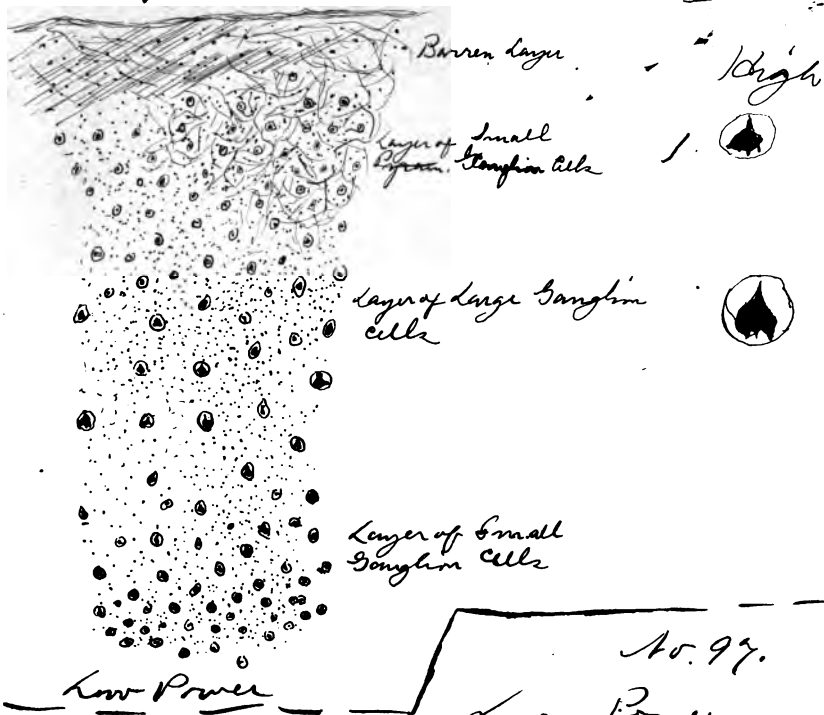 Barren Layer
High
Layer of Small
Ganglion Cells
Layer of Large Ganglion
Cells
Layer of Small
Ganglion Cells
No. 97.
Low Power